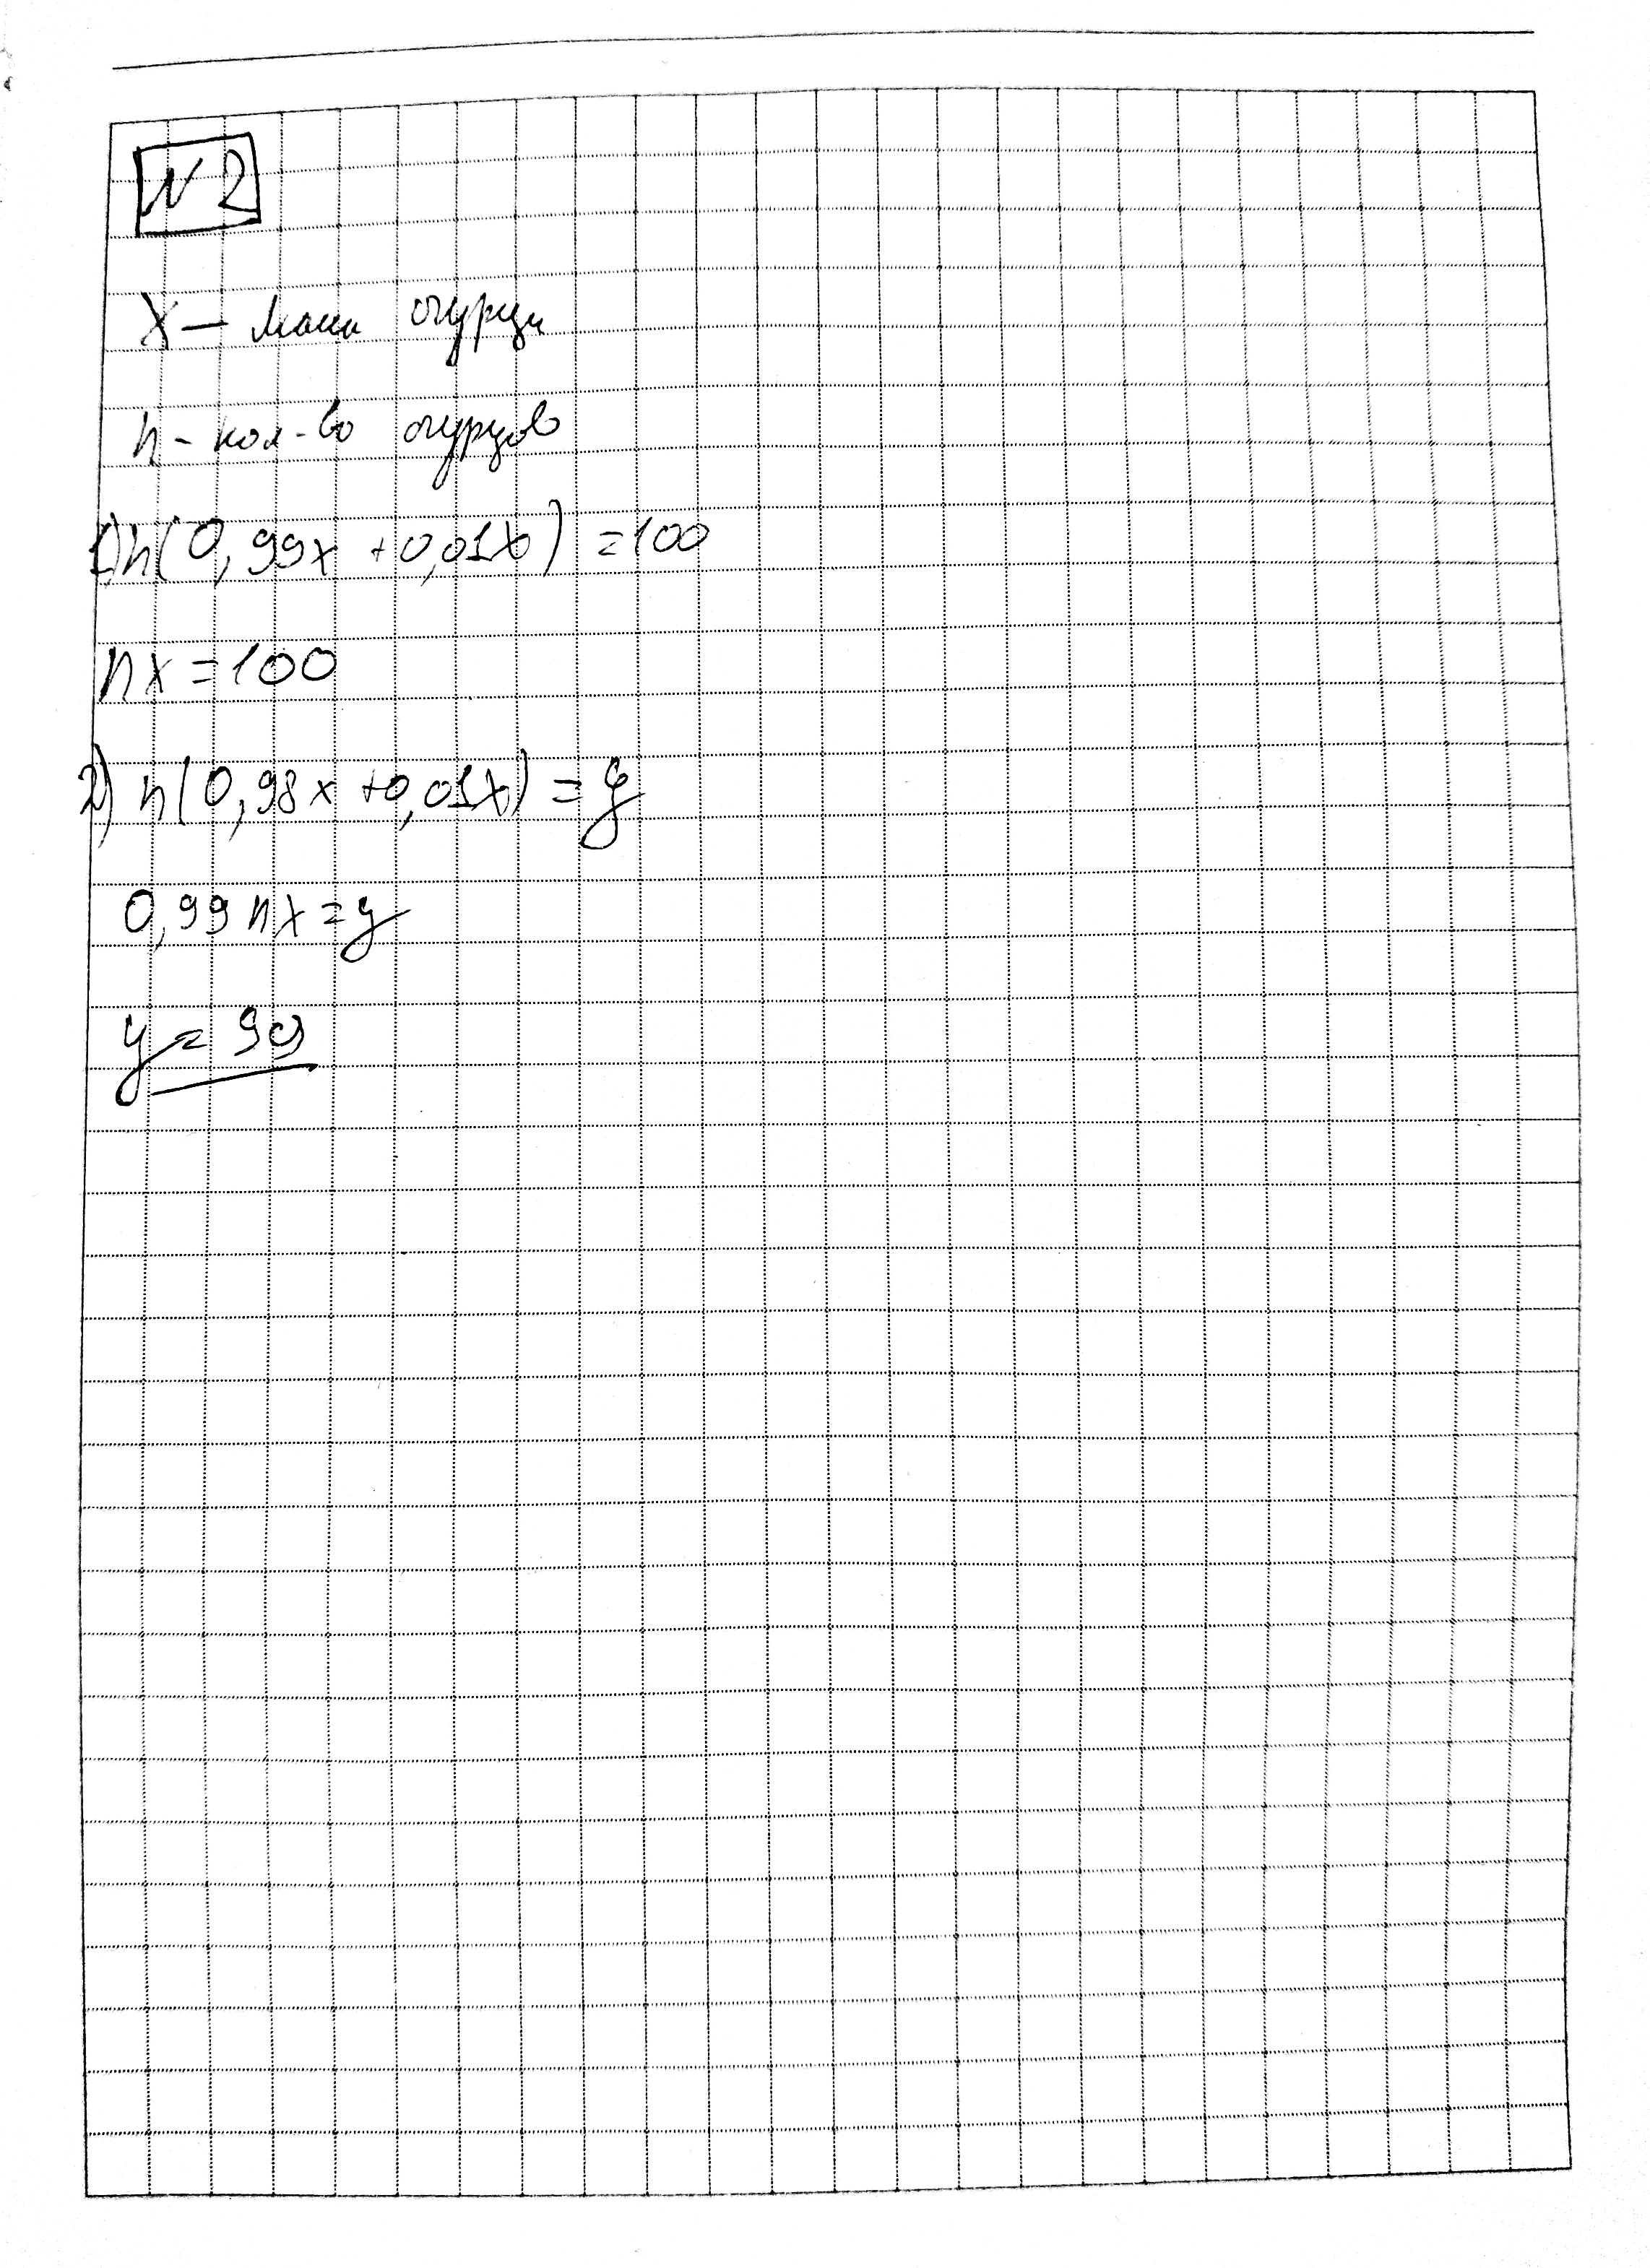 N2
X — масса огурца
n - кол-во огурцов
1) n(0,99x + 0,01x) = 100
nx = 100
2) n(0,98x + 0,01x) = y
0,99nx = y
y = 99